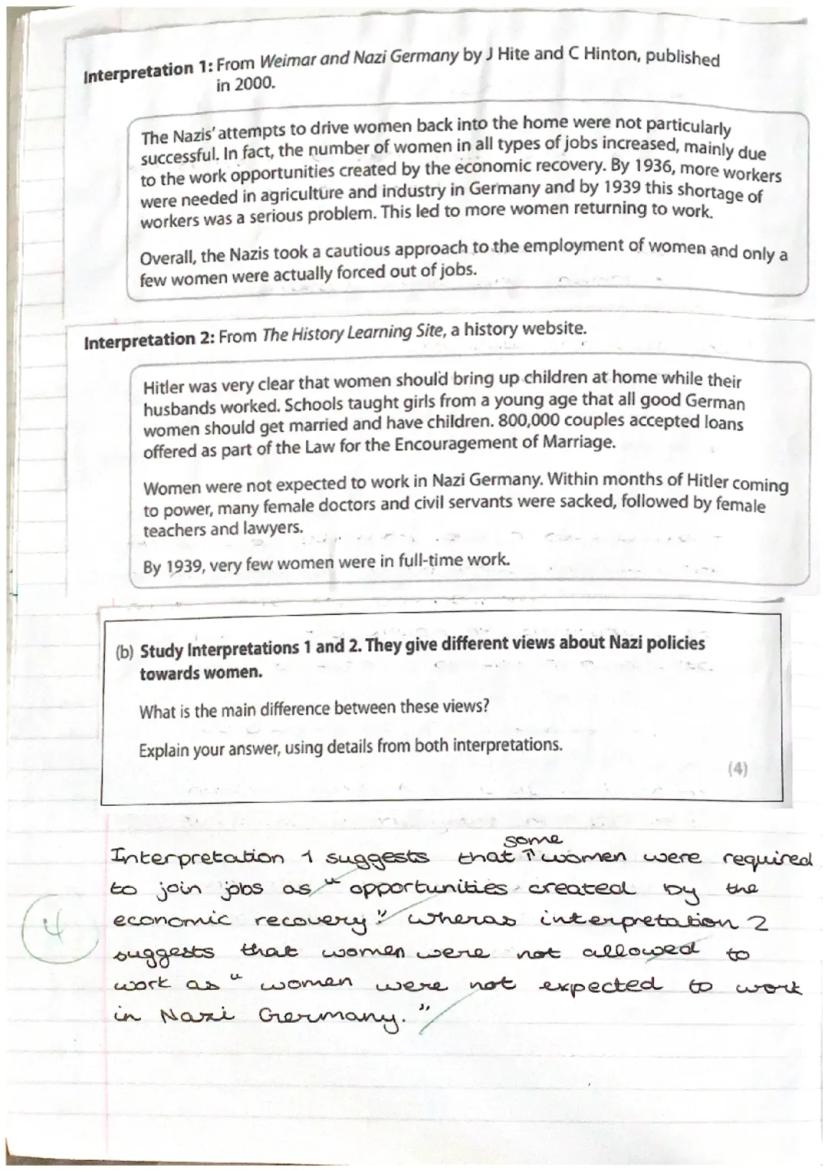 Interpretation 1: From Weimar and Nazi Germany by J Hite and C Hinton, published
in 2000.
The Nazis' attempts to drive women back into the home were not particularly
successful. In fact, the number of women in all types of jobs increased, mainly due
to the work opportunities created by the economic recovery. By 1936, more workers
were needed in agriculture and industry in Germany and by 1939 this shortage of
workers was a serious problem. This led to more women returning to work.
Overall, the Nazis took a cautious approach to the employment of women and only a
few women were actually forced out of jobs.
Interpretation 2: From The History Learning Site, a history website.
Hitler was very clear that women should bring up children at home while their
husbands worked. Schools taught girls from a young age that all good German
women should get married and have children. 800,000 couples accepted loans
offered as part of the Law for the Encouragement of Marriage.
Women were not expected to work in Nazi Germany. Within months of Hitler coming
to power, many female doctors and civil servants were sacked, followed by female
teachers and lawyers.
By 1939, very few women were in full-time work.
(b) Study Interpretations 1 and 2. They give different views about Nazi policies
towards women.
What is the main difference between these views?
Explain your answer, using details from both interpretations.
(4)
some
Interpretation 1 suggests that ↑ women were required
to join jobs as " opportunities created by the
4
economic recovery" wheras interpretation 2
suggests that women were not allowed to
work as " women were not expected to work
in Nazi Germany. "